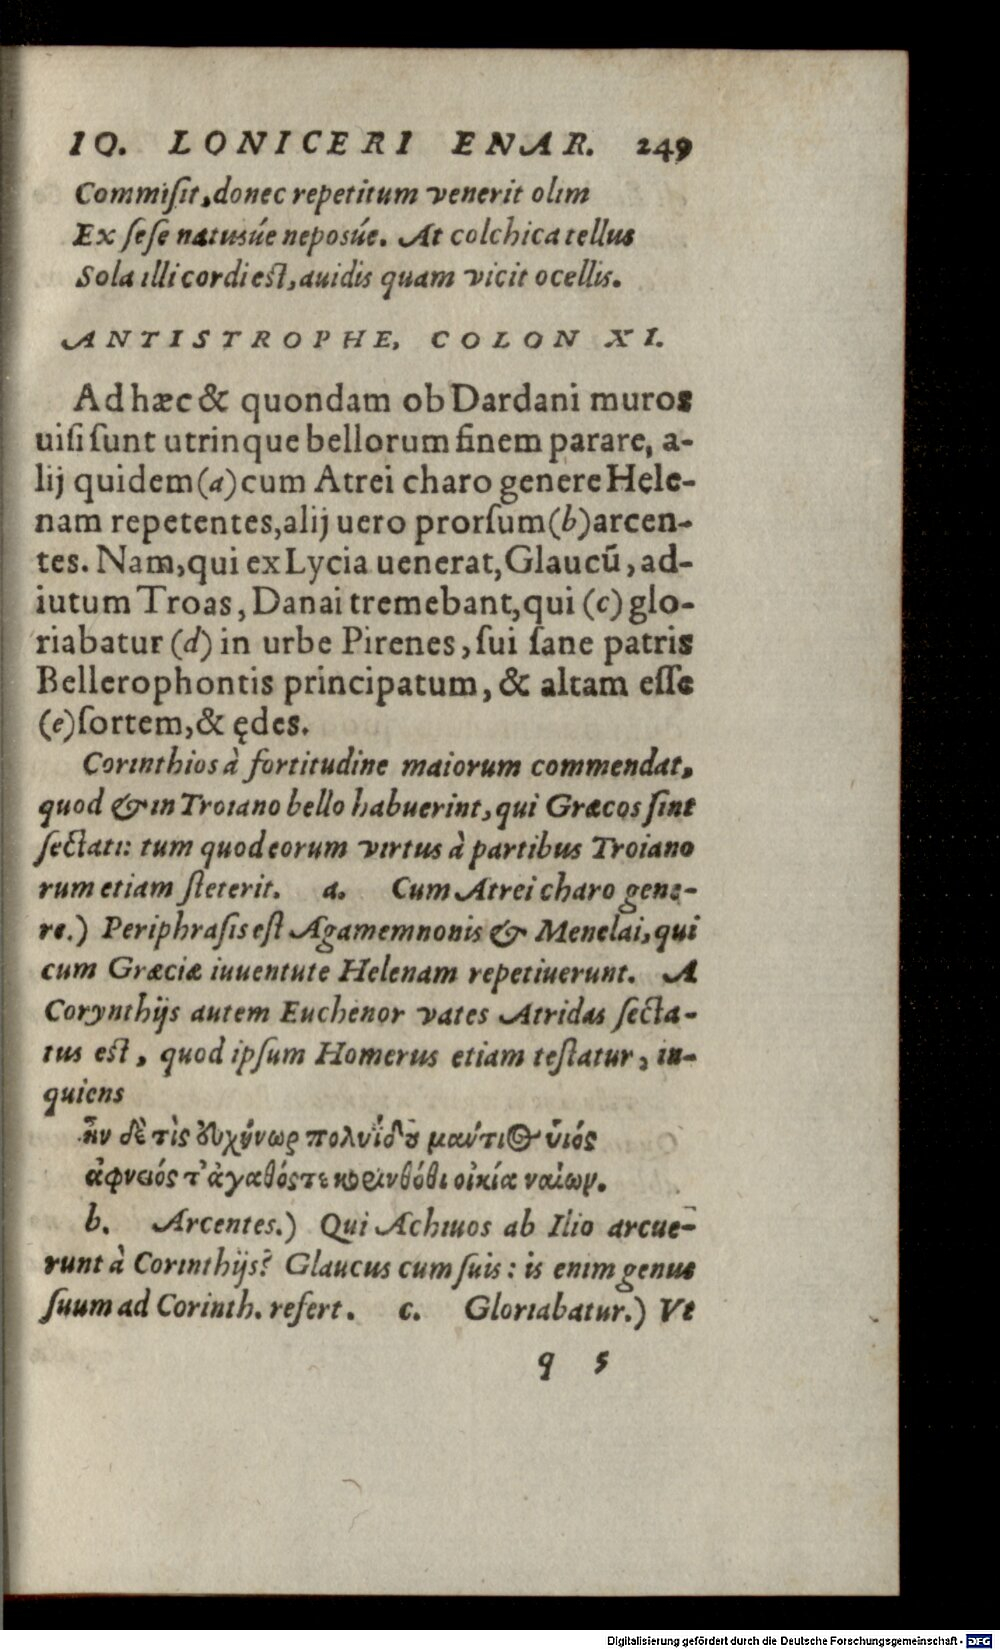 IO. LONICERI ENAR. 249
Commiſit, donec repetitum venerit olim
Ex ſeſe natusúe neposúe. At colchica tellus
Sola illi cordi est, auidis quam vicit ocellis.
ANTISTROPHE, COLON XI.
Ad hæc & quondam ob Dardani muros
uiſi ſunt utrinque bellorum finem parare, a-
lij quidem (a) cum Atrei charo genere Hele-
nam repetentes, alij uero prorſum (b) arcen-
tes. Nam, qui ex Lycia uenerat, Glaucũ, ad-
iutum Troas, Danai tremebant, qui (c) glo-
riabatur (d) in urbe Pirenes, ſui ſane patris
Bellerophontis principatum, & altam eſſe
(e) ſortem, & ędes.
Corinthios à fortitudine maiorum commendat,
quod & in Troiano bello habuerint, qui Græcos ſint
ſectati: tum quod eorum virtus à partibus Troiano
rum etiam ſteterit. a. Cum Atrei charo gene-
re.) Periphraſis eſt Agamemnonis & Menelai, qui
cum Græciæ iuuentute Helenam repetiuerunt. A
Corynthijs autem Euchenor vates Atridas ſecta-
tus est, quod ipſum Homerus etiam teſtatur, in-
quiens
ἦν δὲ τὶς ἐυχήνωρ πολυΐδου μαντιος ὑιός
ἀφνειός τ' ἀγαθός τε κορινθόθι οἰκία ναίων.
b. Arcentes.) Qui Achiuos ab Ilio arcue-
runt à Corinthijs? Glaucus cum ſuis: is enim genus
ſuum ad Corinth. refert. c. Gloriabatur.) Vt
q 5
Digitalisierung gefördert durch die Deutsche Forschungsgemeinschaft - DFG